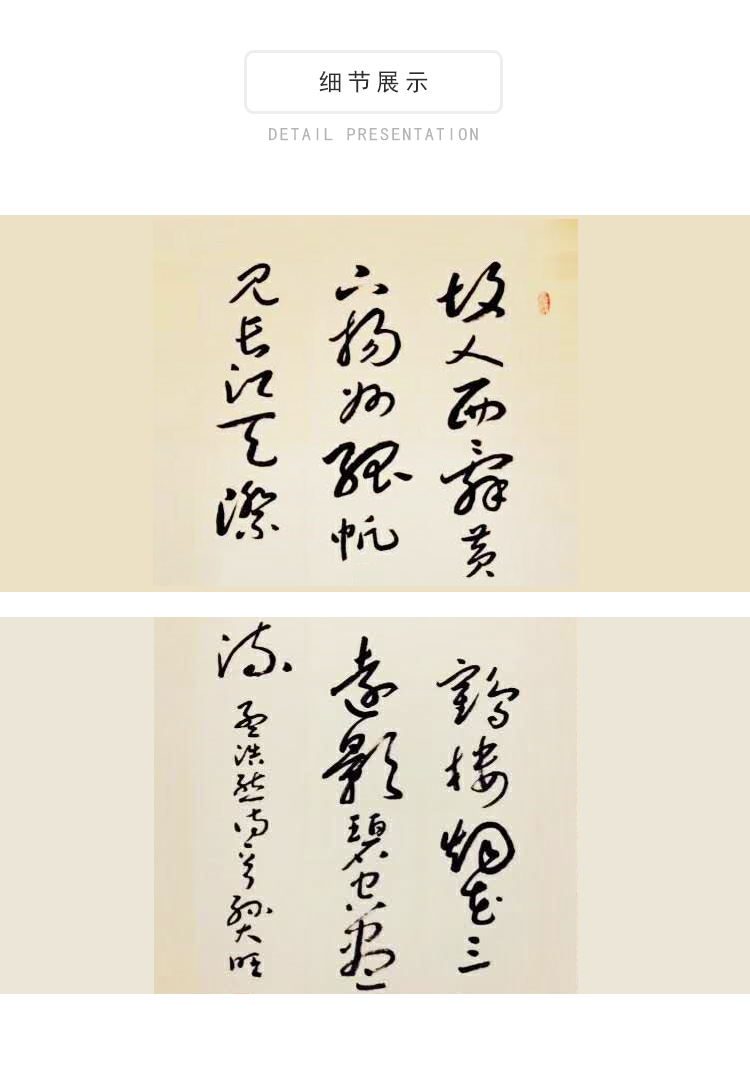 细节展示
DETAIL PRESENTATION
故人西辞黄
下扬州孤帆
见长江天际
鹤楼烟花三
远影碧空尽
流 孟浩然诗 孙大旺